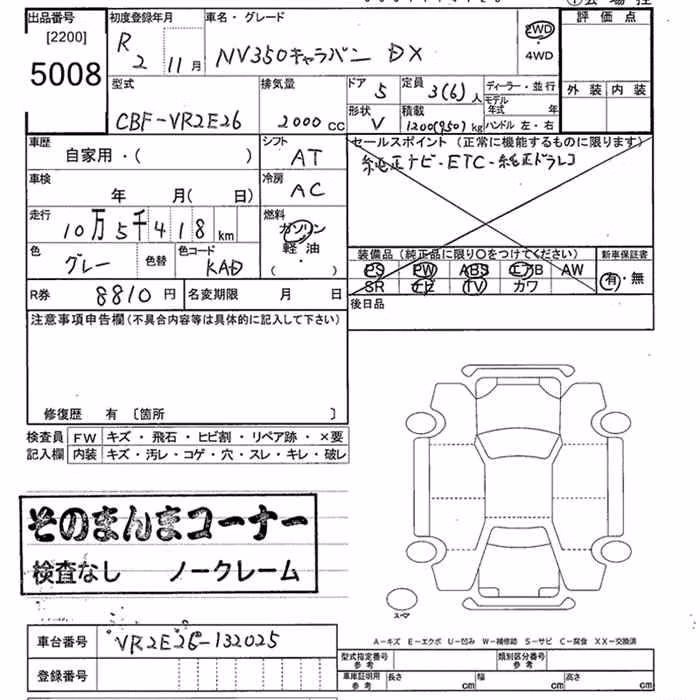 出品番号 初度登録年月 車名・グレード 評価点
[2200] R 2 11月 NV350キャラバン DX 2WD・4WD
5008 外装 内装
型式 排気量 ドア 5 定員 3(6)人 ディーラー・並行
モデル年式 年
CBF-VR2E26 2000cc 形状 V 積載 1200(950)kg ハンドル 左・右
車歴 自家用・( ) シフト AT セールスポイント(正常に機能するものに限ります)
純正ナビ・ETC・純正ドラレコ
車検 年 月(日) 冷房 AC
走行 10万5千418km 燃料 ガソリン・軽油・( )
色 グレー 色替 色コード KAD 装備品(純正品に限り〇をつけてください) 新車保証書
PS PW ABS エアB AW 有・無
R券 8810円 名変期限 月 日 SR ナビ TV カワ
後日品
注意事項申告欄(不具合内容等は具体的に記入して下さい)
修復歴 有 〔箇所 〕
検査員 FW キズ・飛石・ヒビ割・リペア跡・×要
記入欄 内装 キズ・汚レ・コゲ・穴・スレ・キレ・破レ
そのまんまコーナー
検査なし ノークレーム
スペア
A-キズ E-エクボ U-凹み W-補修跡 S-サビ C-腐食 XX-交換済
車台番号 VR2E26-132025
型式指定番号 参考 類別区分番号 参考
登録番号 車庫証明用 参考 長さ cm 幅 cm 高さ cm